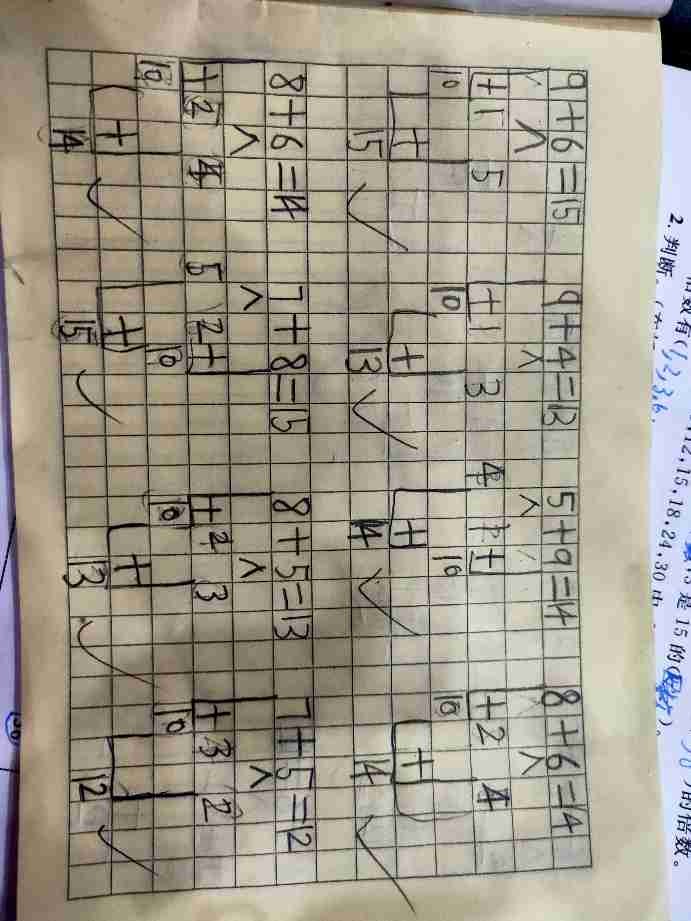 9+6=15 9+4=13 5+9=14 8+6=14
+1 5 +1 3 4 1+ +2 4
10 10 10 10
+ + + +
15 13 14 14
8+6=14 7+8=15 8+5=13 7+5=12
+2 4 5 2+ +2 3 +3 2
10 10 10 10
+ + + +
14 15 13 12
2.判断。
12,15,18,24,30
是15的
的倍数。